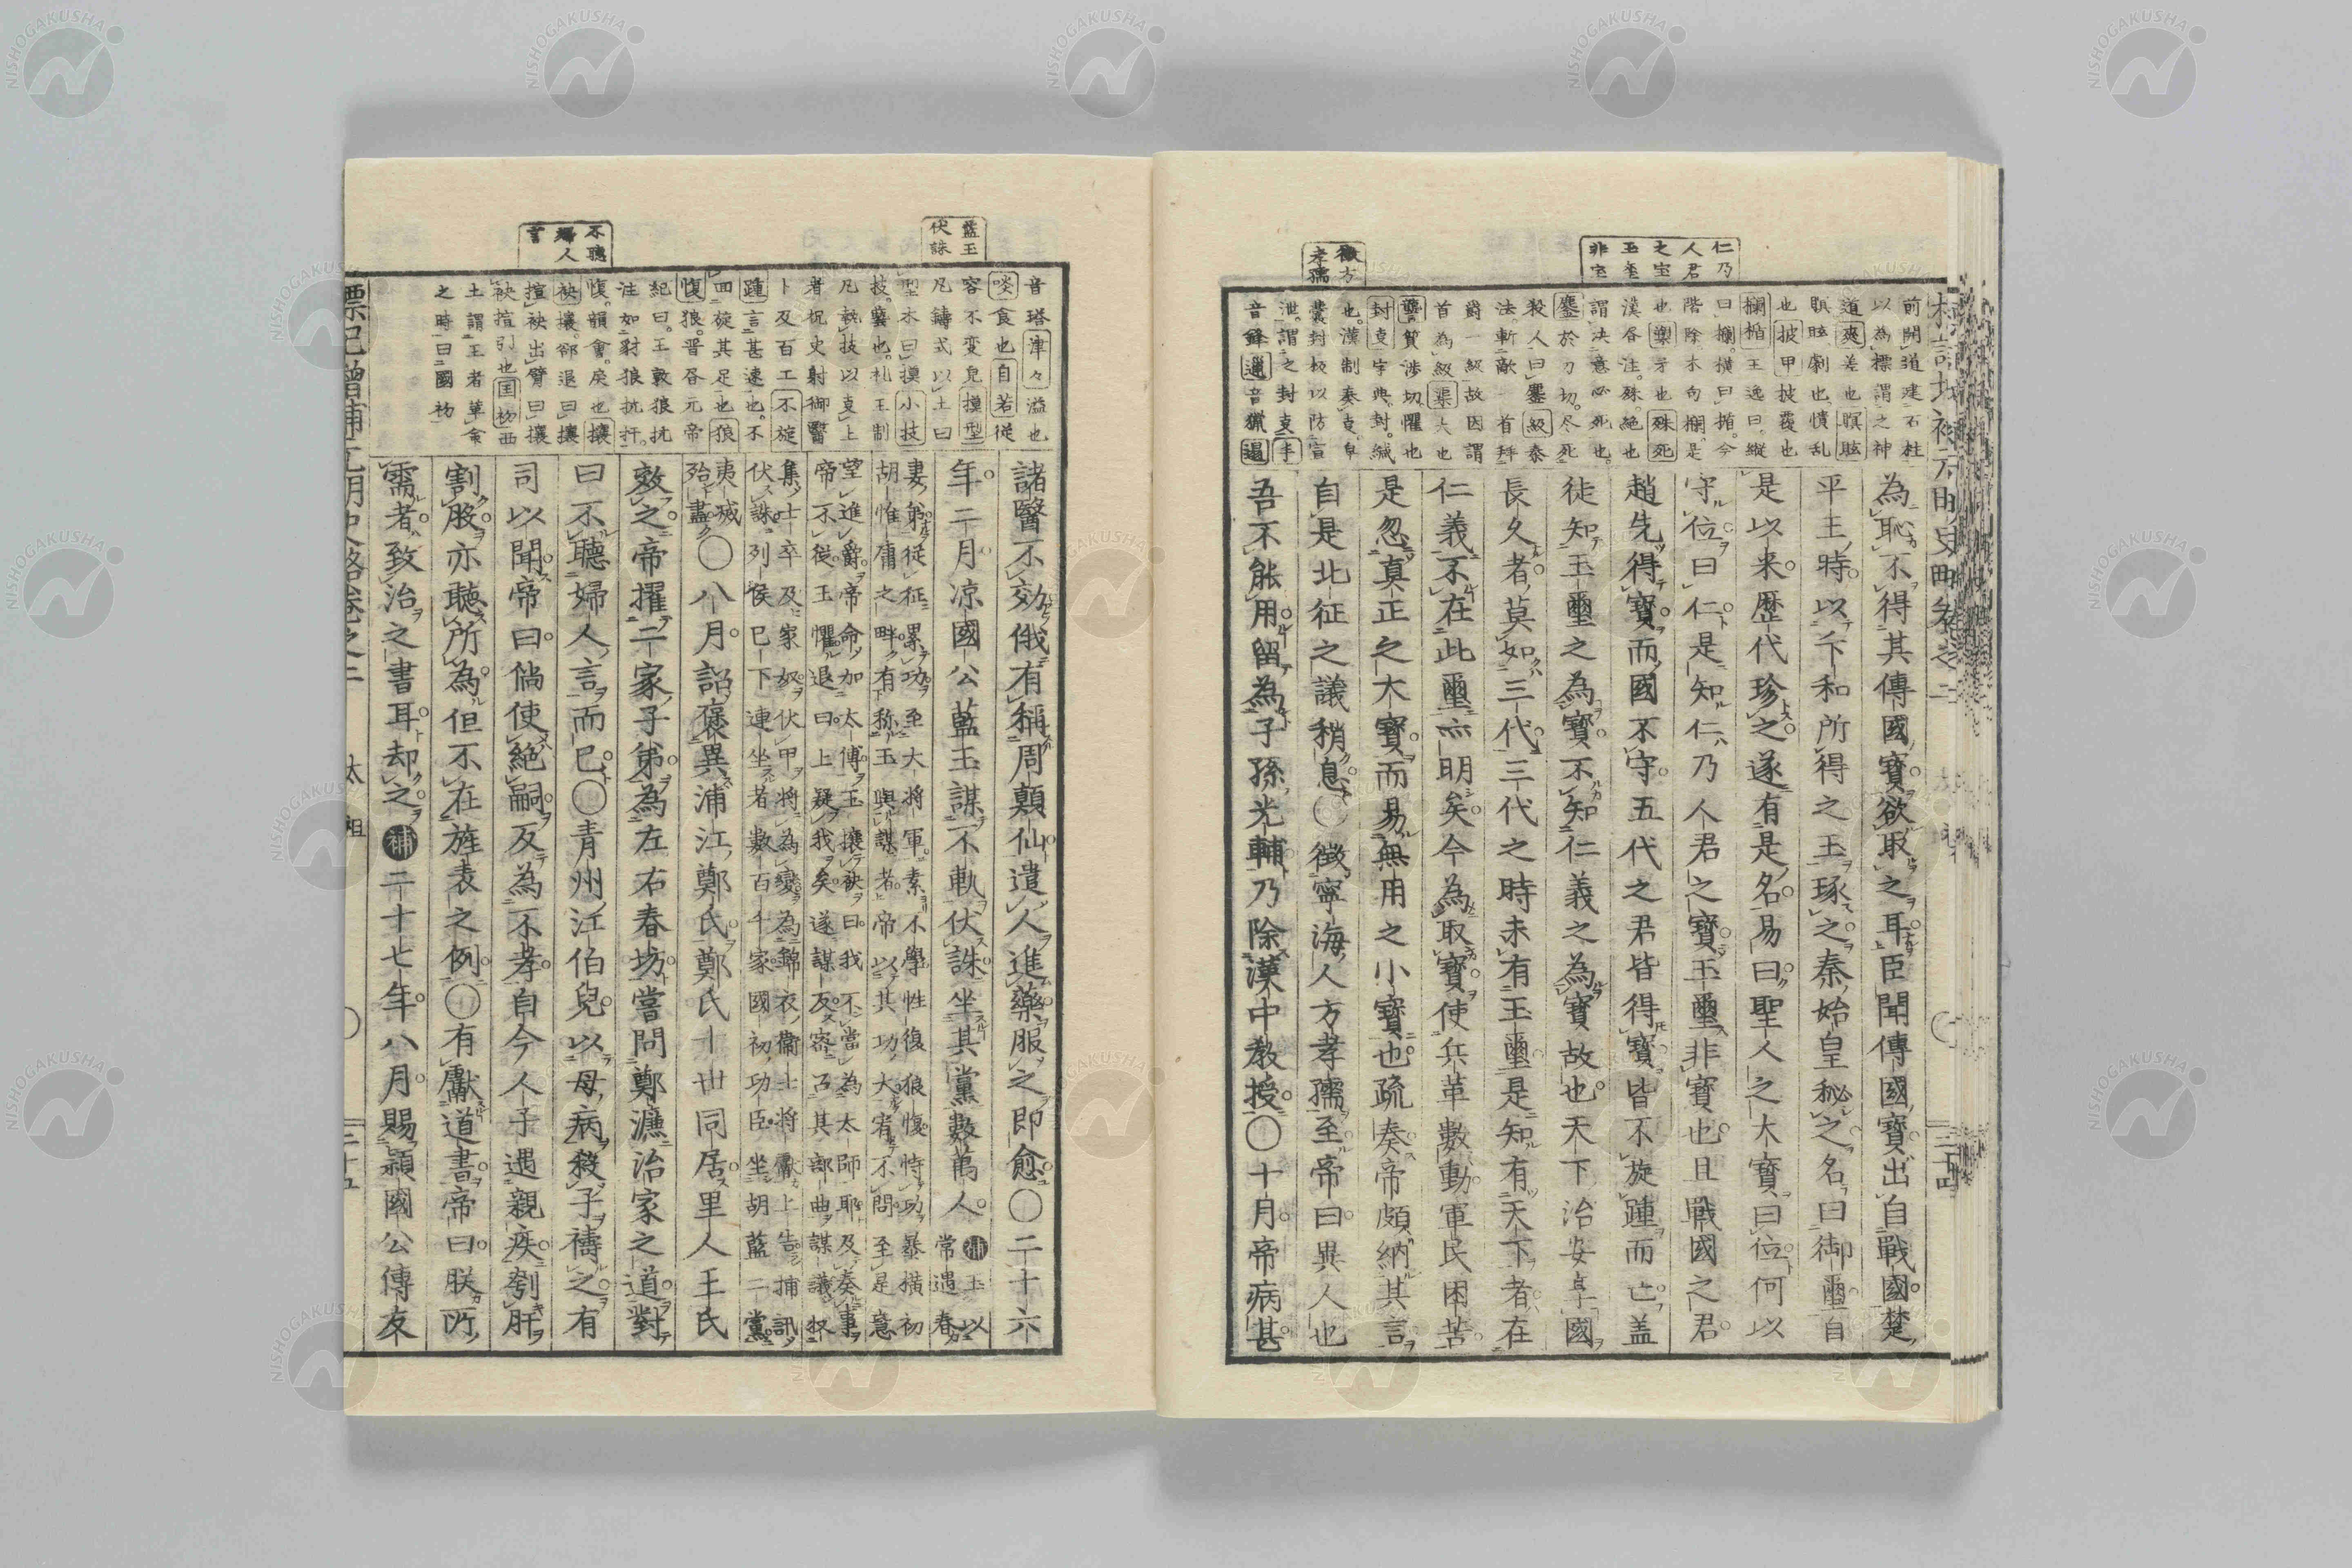 仁乃
人君
之宝
玉玺
非宝
徴方
孝孺
前開道建石柱
以為標謂之神
道爽差也瞑眩
瞑眩劇也憒乱
也披甲披覆也
欄楯王逸曰縦
曰欄横曰楯今
階除木勾欄是
也槊矛也殊死
漢各注殊絶也
謂决意必死也
鏖於刀切尽死
殺人曰鏖級秦
法斬敵一首拜
爵一級故因謂
首為級渠大也
讋質渉切懼也
封㕛字典封緘
也漢制奏㕛皁
嚢封板以防宣
泄謂之封㕛手
音鋒邋音猟遢
為恥不得其傳國寶欲取之耳臣聞傳國寶出自戰國楚
平王時以卞和所得之玉琢之秦始皇秘之名曰御璽自
是以来歴代珍之遂有是名易曰聖人之大寶曰位何以
守位曰仁是知仁乃人君之寶玉璽非寶也且戰國之君
趙先得寶而國不守五代之君皆得寶皆不旋踵而亡盖
徒知玉璽之為寶不知仁義之為寶故也天下治安享國
長久者莫如三代三代之時未有玉璽是知有天下者在
仁義不在此璽亦明矣今為取寶使兵革數動軍民困苦
是忽真正之大寶而易無用之小寶也疏奏帝頗納其言
自是北征之議稍息〇徴寧海人方孝孺至帝曰異人也
吾不能用留為子孫光輔乃除漢中教授〇十月帝病甚
藍玉
伏誅
不聽
婦人
言
音塔津々溢也
啖食也自若從
容不変皃摸型
凡鋳式以土曰
型木曰摸小技
技藝也礼王制
凡執技以㕛上
者祝史射御醫
卜及百工不旋
踵言甚速也不
回旋其足也狼
愎狼晋吝元帝
紀曰王敦狼抗
注如豺狼抗扞
愎韻會戾也攘
袂攘郤退曰攘
揎袂出臂曰攘
袂揎引也囯初西
土謂王者革命
之時曰國初
諸醫不効俄有稱周顛仙遣人進藥服之即愈〇二十六
年二月凉國公藍玉謀不軌伏誅坐其黨數萬人補玉以常遇春
妻弟從征累功至大將軍素不學性復狼愎恃功暴横初
胡惟庸之畔有称玉與謀者帝以其功大宥不問至是意
望進爵帝命加太傅玉攘袂曰我不當為太師耶及奏事
帝不從玉懼退曰上疑我矣遂謀反密召其部曲謀議収
集士卒及家奴伏甲將為變為錦衣衞士將獻上告捕訊
伏誅列侯已下連坐者數百千家國初功臣坐胡藍二黨
夷滅
殆盡〇八月詔褒異浦江鄭氏鄭氏十世同居里人王氏
效之帝擢二家子弟為左右春坊嘗問鄭濂治家之道對
曰不聽婦人言而已〇青州江伯兒以母病殺子禱之有
司以聞帝曰倘使絶嗣反為不孝自今人子遇親疾刳肝
割股亦聽所為但不在旌表之例〇有獻道書帝曰朕所
需者致治之書耳却之補二十七年八月賜潁國公傅友
標記增補元明史略卷之二 太祖 〇 三十五